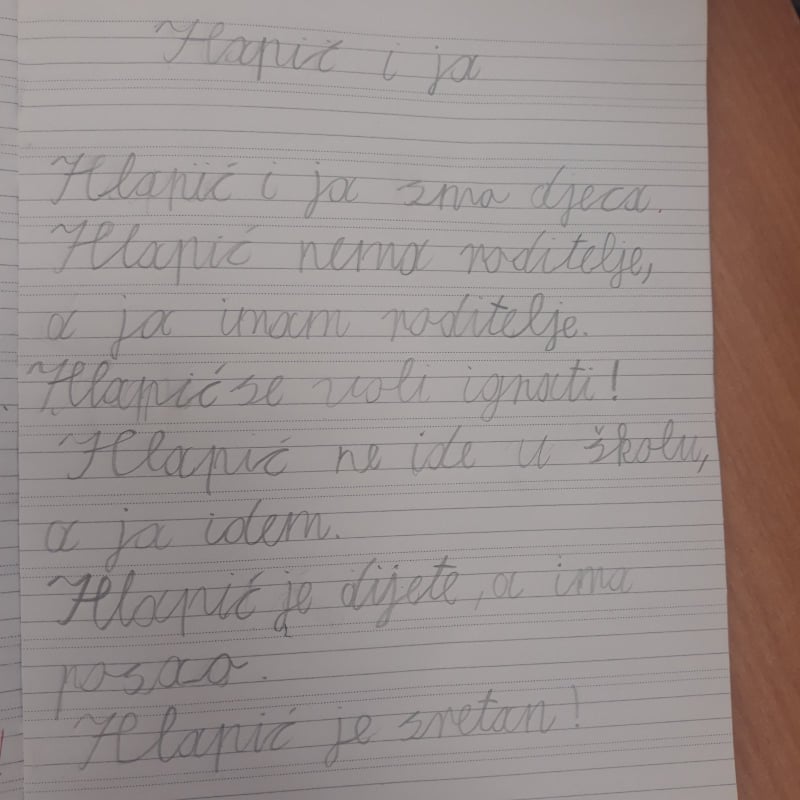 Hlapić i ja
Hlapić i ja smo djeca.
Hlapić nema roditelje,
a ja imam roditelje.
Hlapić se voli igrati!
Hlapić ne ide u školu,
a ja idem.
Hlapić je dijete, a ima
posao.
Hlapić je sretan!